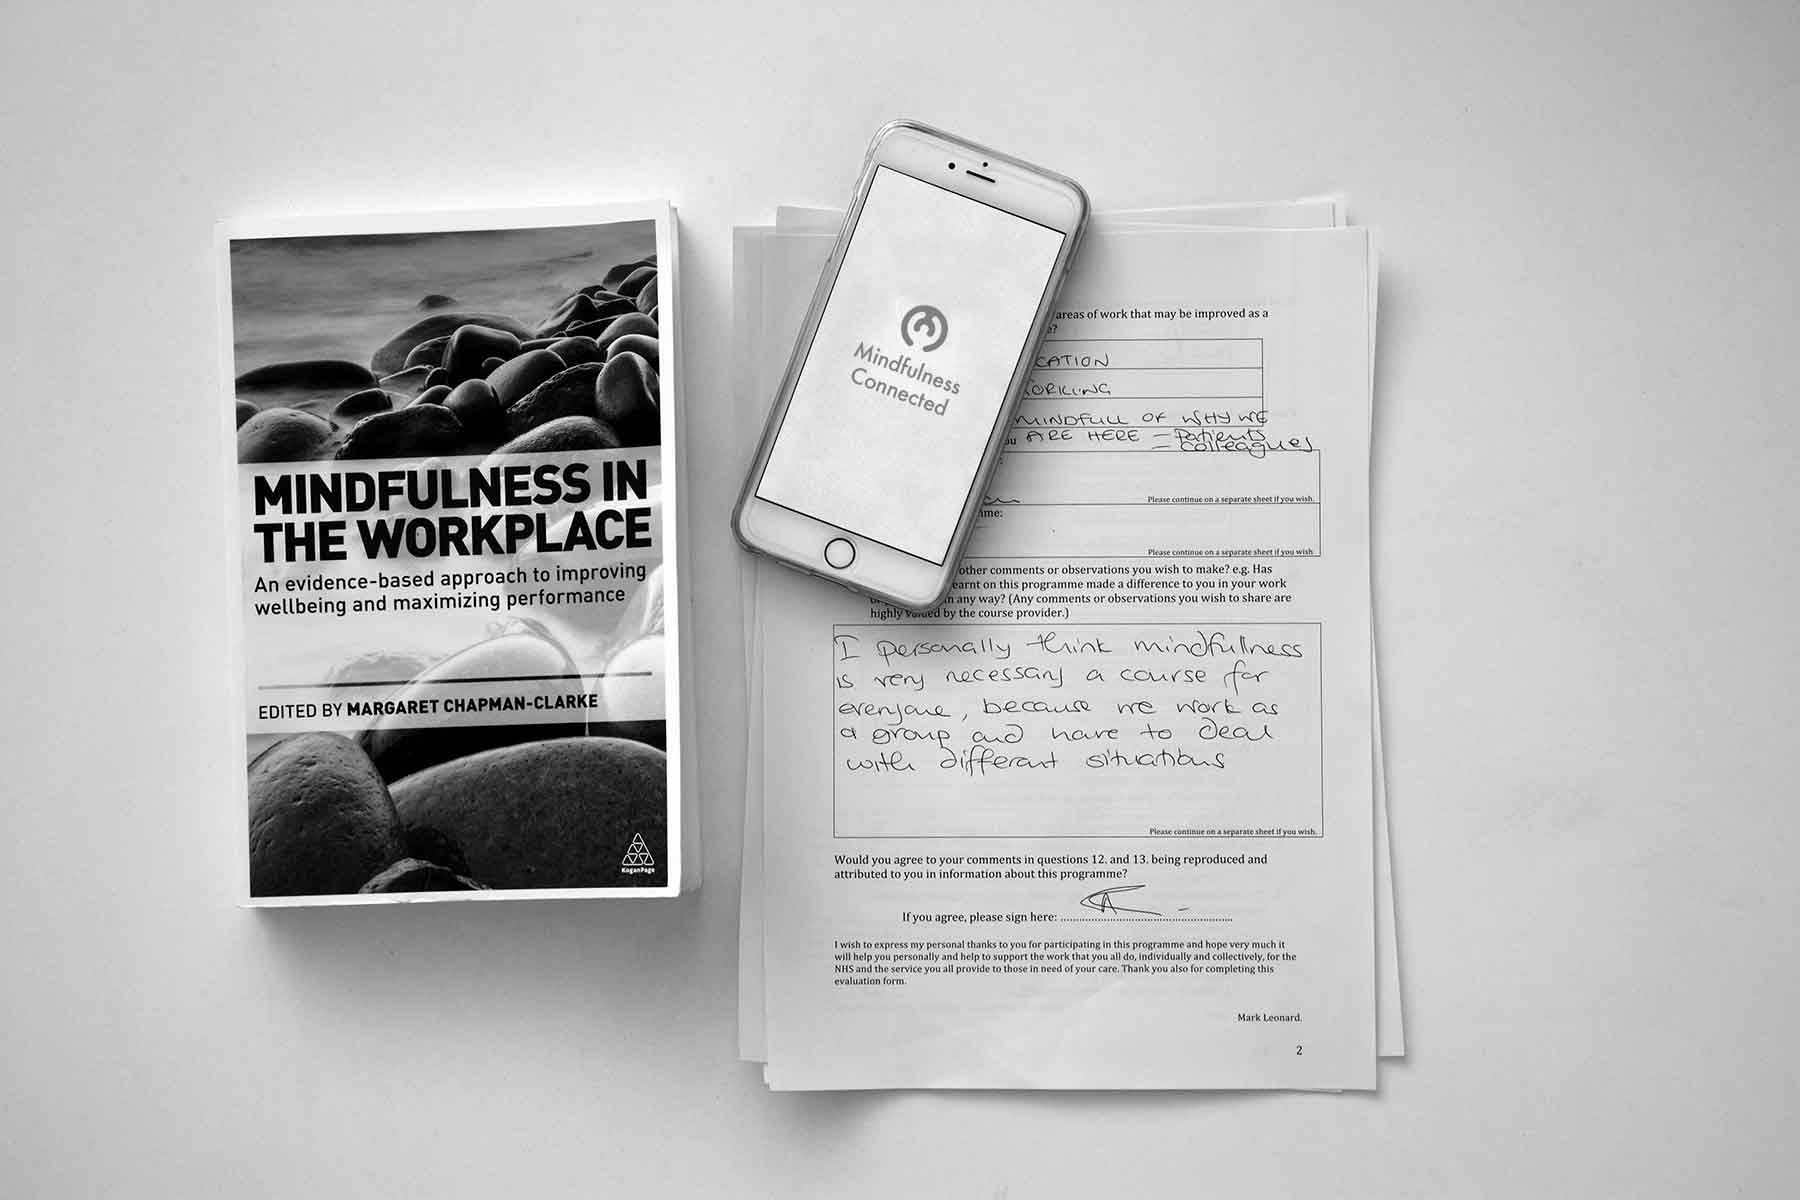 MINDFULNESS IN
THE WORKPLACE
An evidence-based approach to improving
wellbeing and maximizing performance
EDITED BY MARGARET CHAPMAN-CLARKE
KoganPage
Mindfulness
Connected
areas of work that may be improved as a
e?
CATION
ORKING
MINDFULL OF WHY WE
ou ARE HERE – Patients
– Colleagues
Please continue on a separate sheet if you wish.
me:
Please continue on a separate sheet if you wish.
other comments or observations you wish to make? e.g. Has
earnt on this programme made a difference to you in your work
in any way? (Any comments or observations you wish to share are
highly valued by the course provider.)
I personally think mindfullness
is very necessary a course for
everyone, because we work as
a group and have to deal
with different situations
Please continue on a separate sheet if you wish.
Would you agree to your comments in questions 12. and 13. being reproduced and
attributed to you in information about this programme?
If you agree, please sign here:
I wish to express my personal thanks to you for participating in this programme and hope very much it
will help you personally and help to support the work that you all do, individually and collectively, for the
NHS and the service you all provide to those in need of your care. Thank you also for completing this
evaluation form.
Mark Leonard.
2